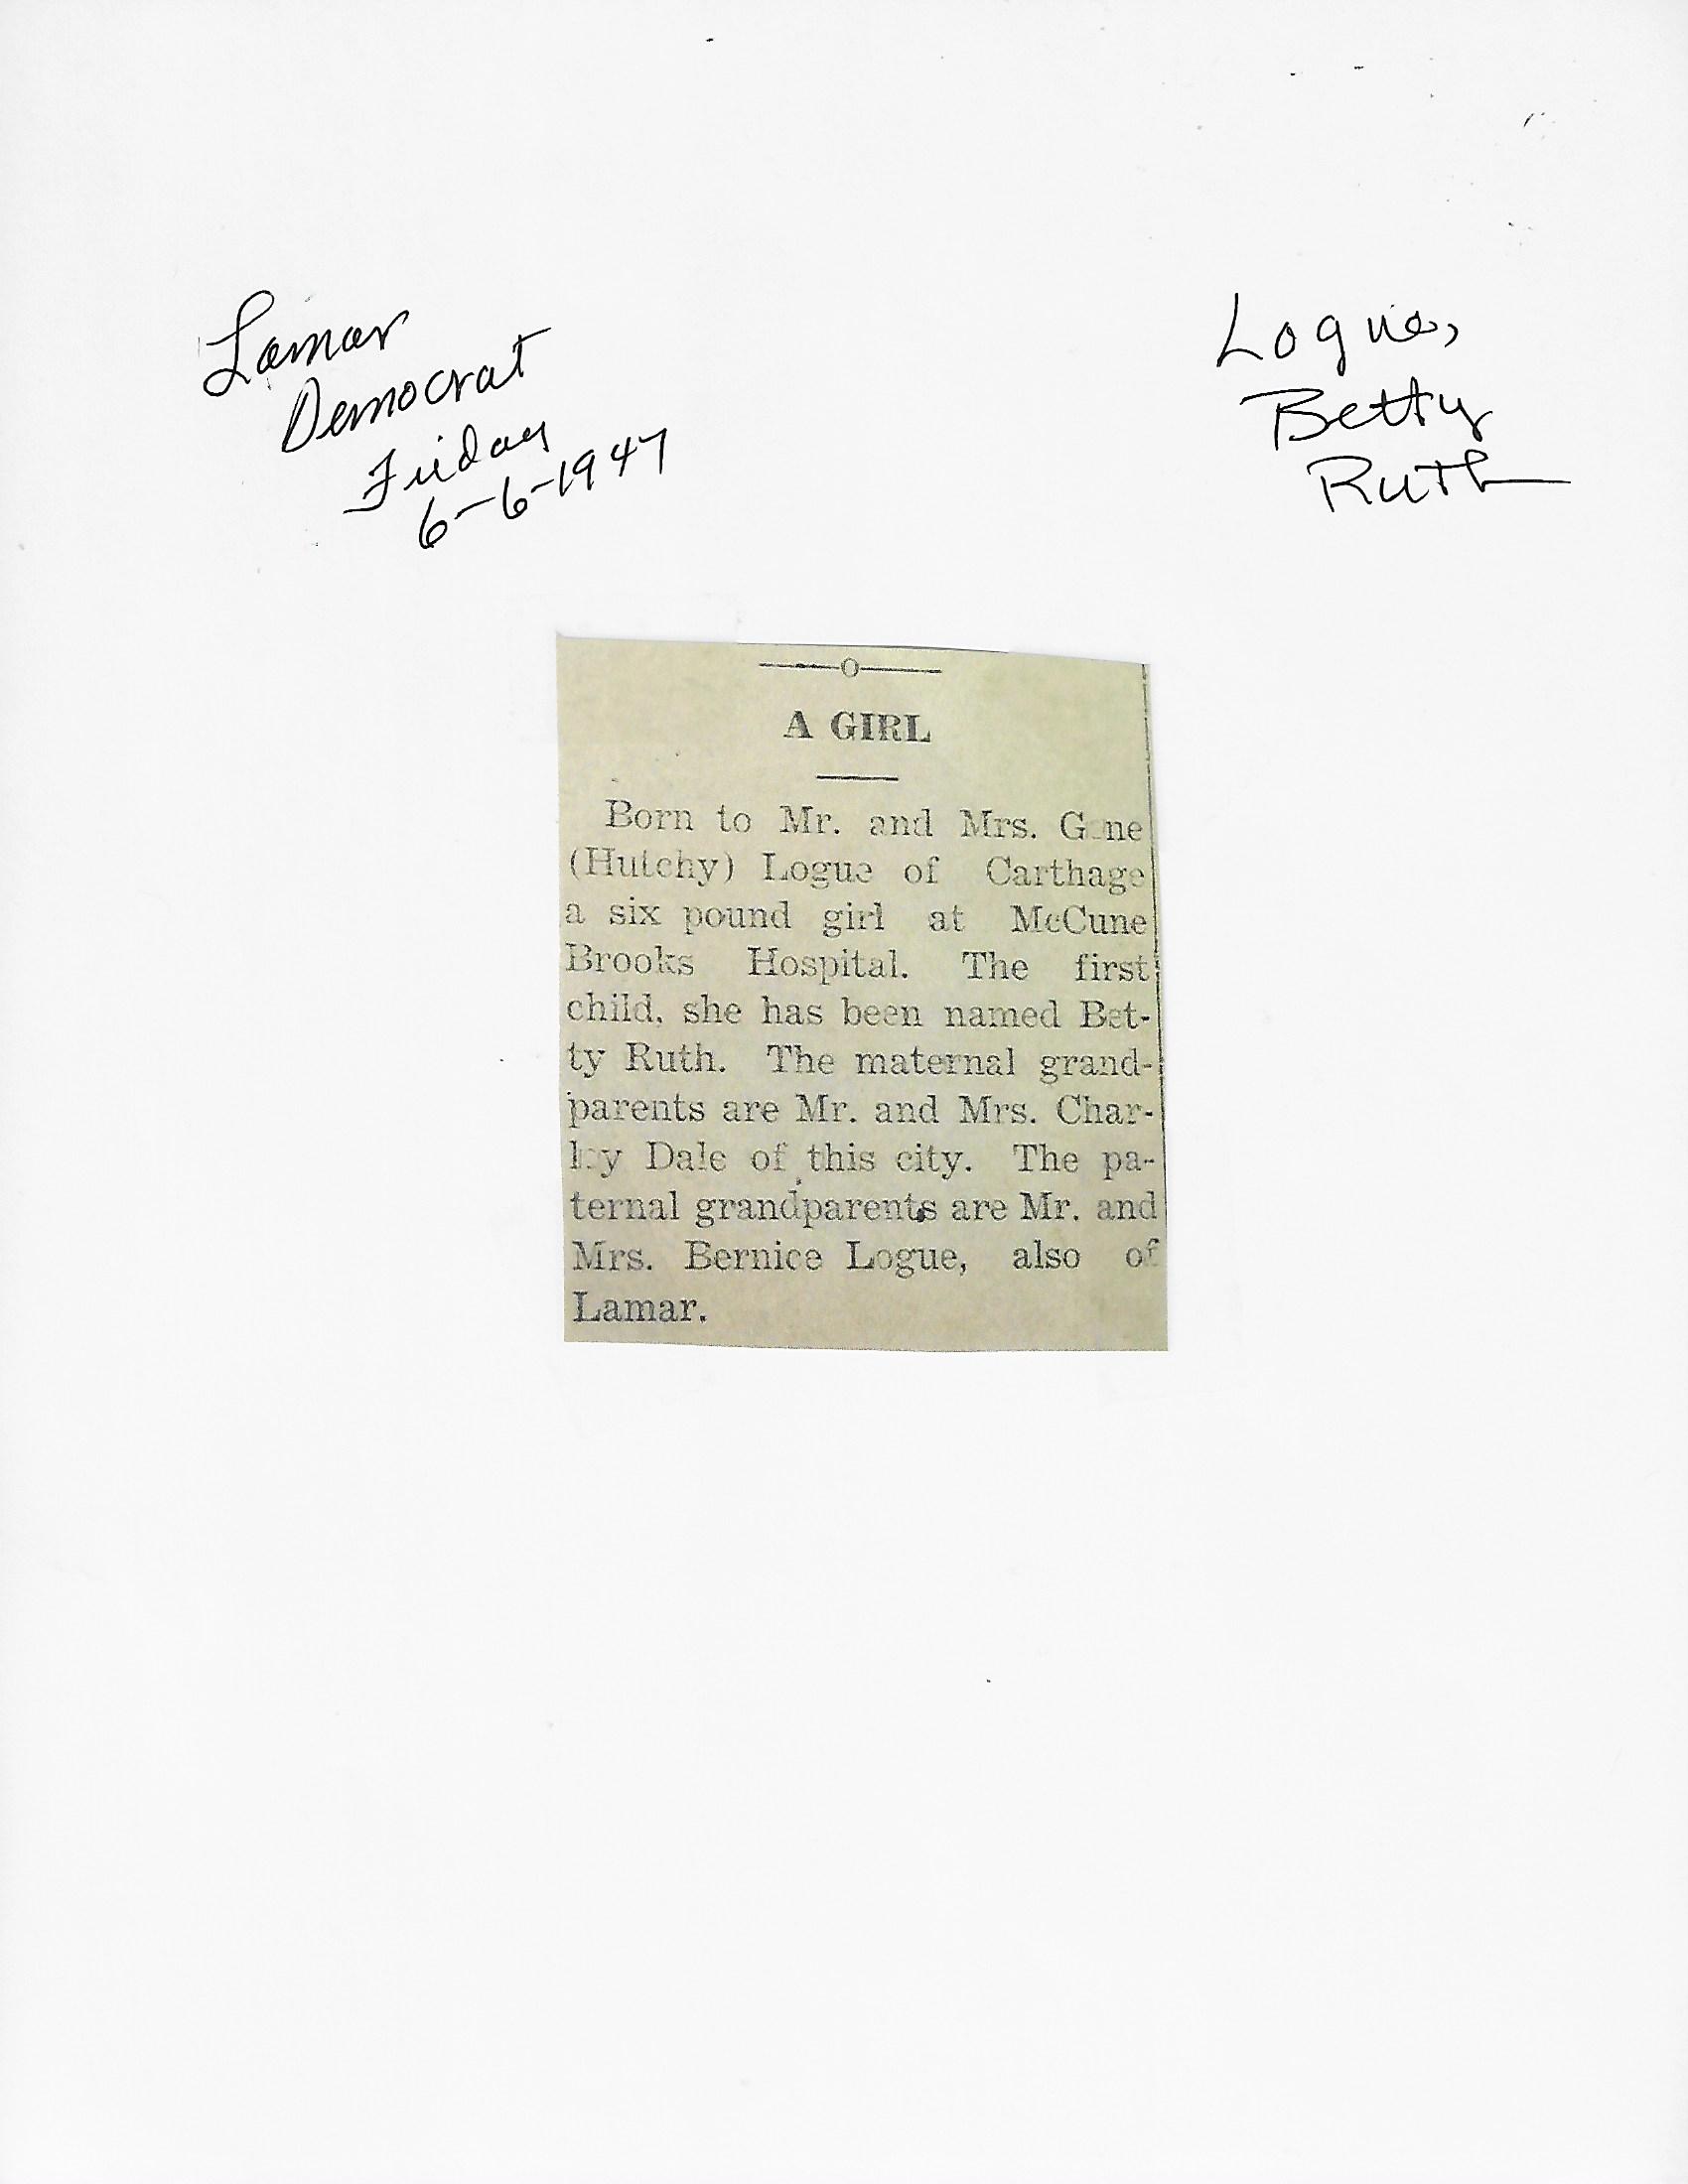 Lamar
Democrat
Friday
6-6-1947
Logue,
Betty
Ruth
A GIRL
Born to Mr. and Mrs. Gene
(Hutchy) Logue of Carthage
a six pound girl at McCune
Brooks Hospital. The first
child, she has been named Bet-
ty Ruth. The maternal grand-
parents are Mr. and Mrs. Char-
ley Dale of this city. The pa-
ternal grandparents are Mr. and
Mrs. Bernice Logue, also of
Lamar.